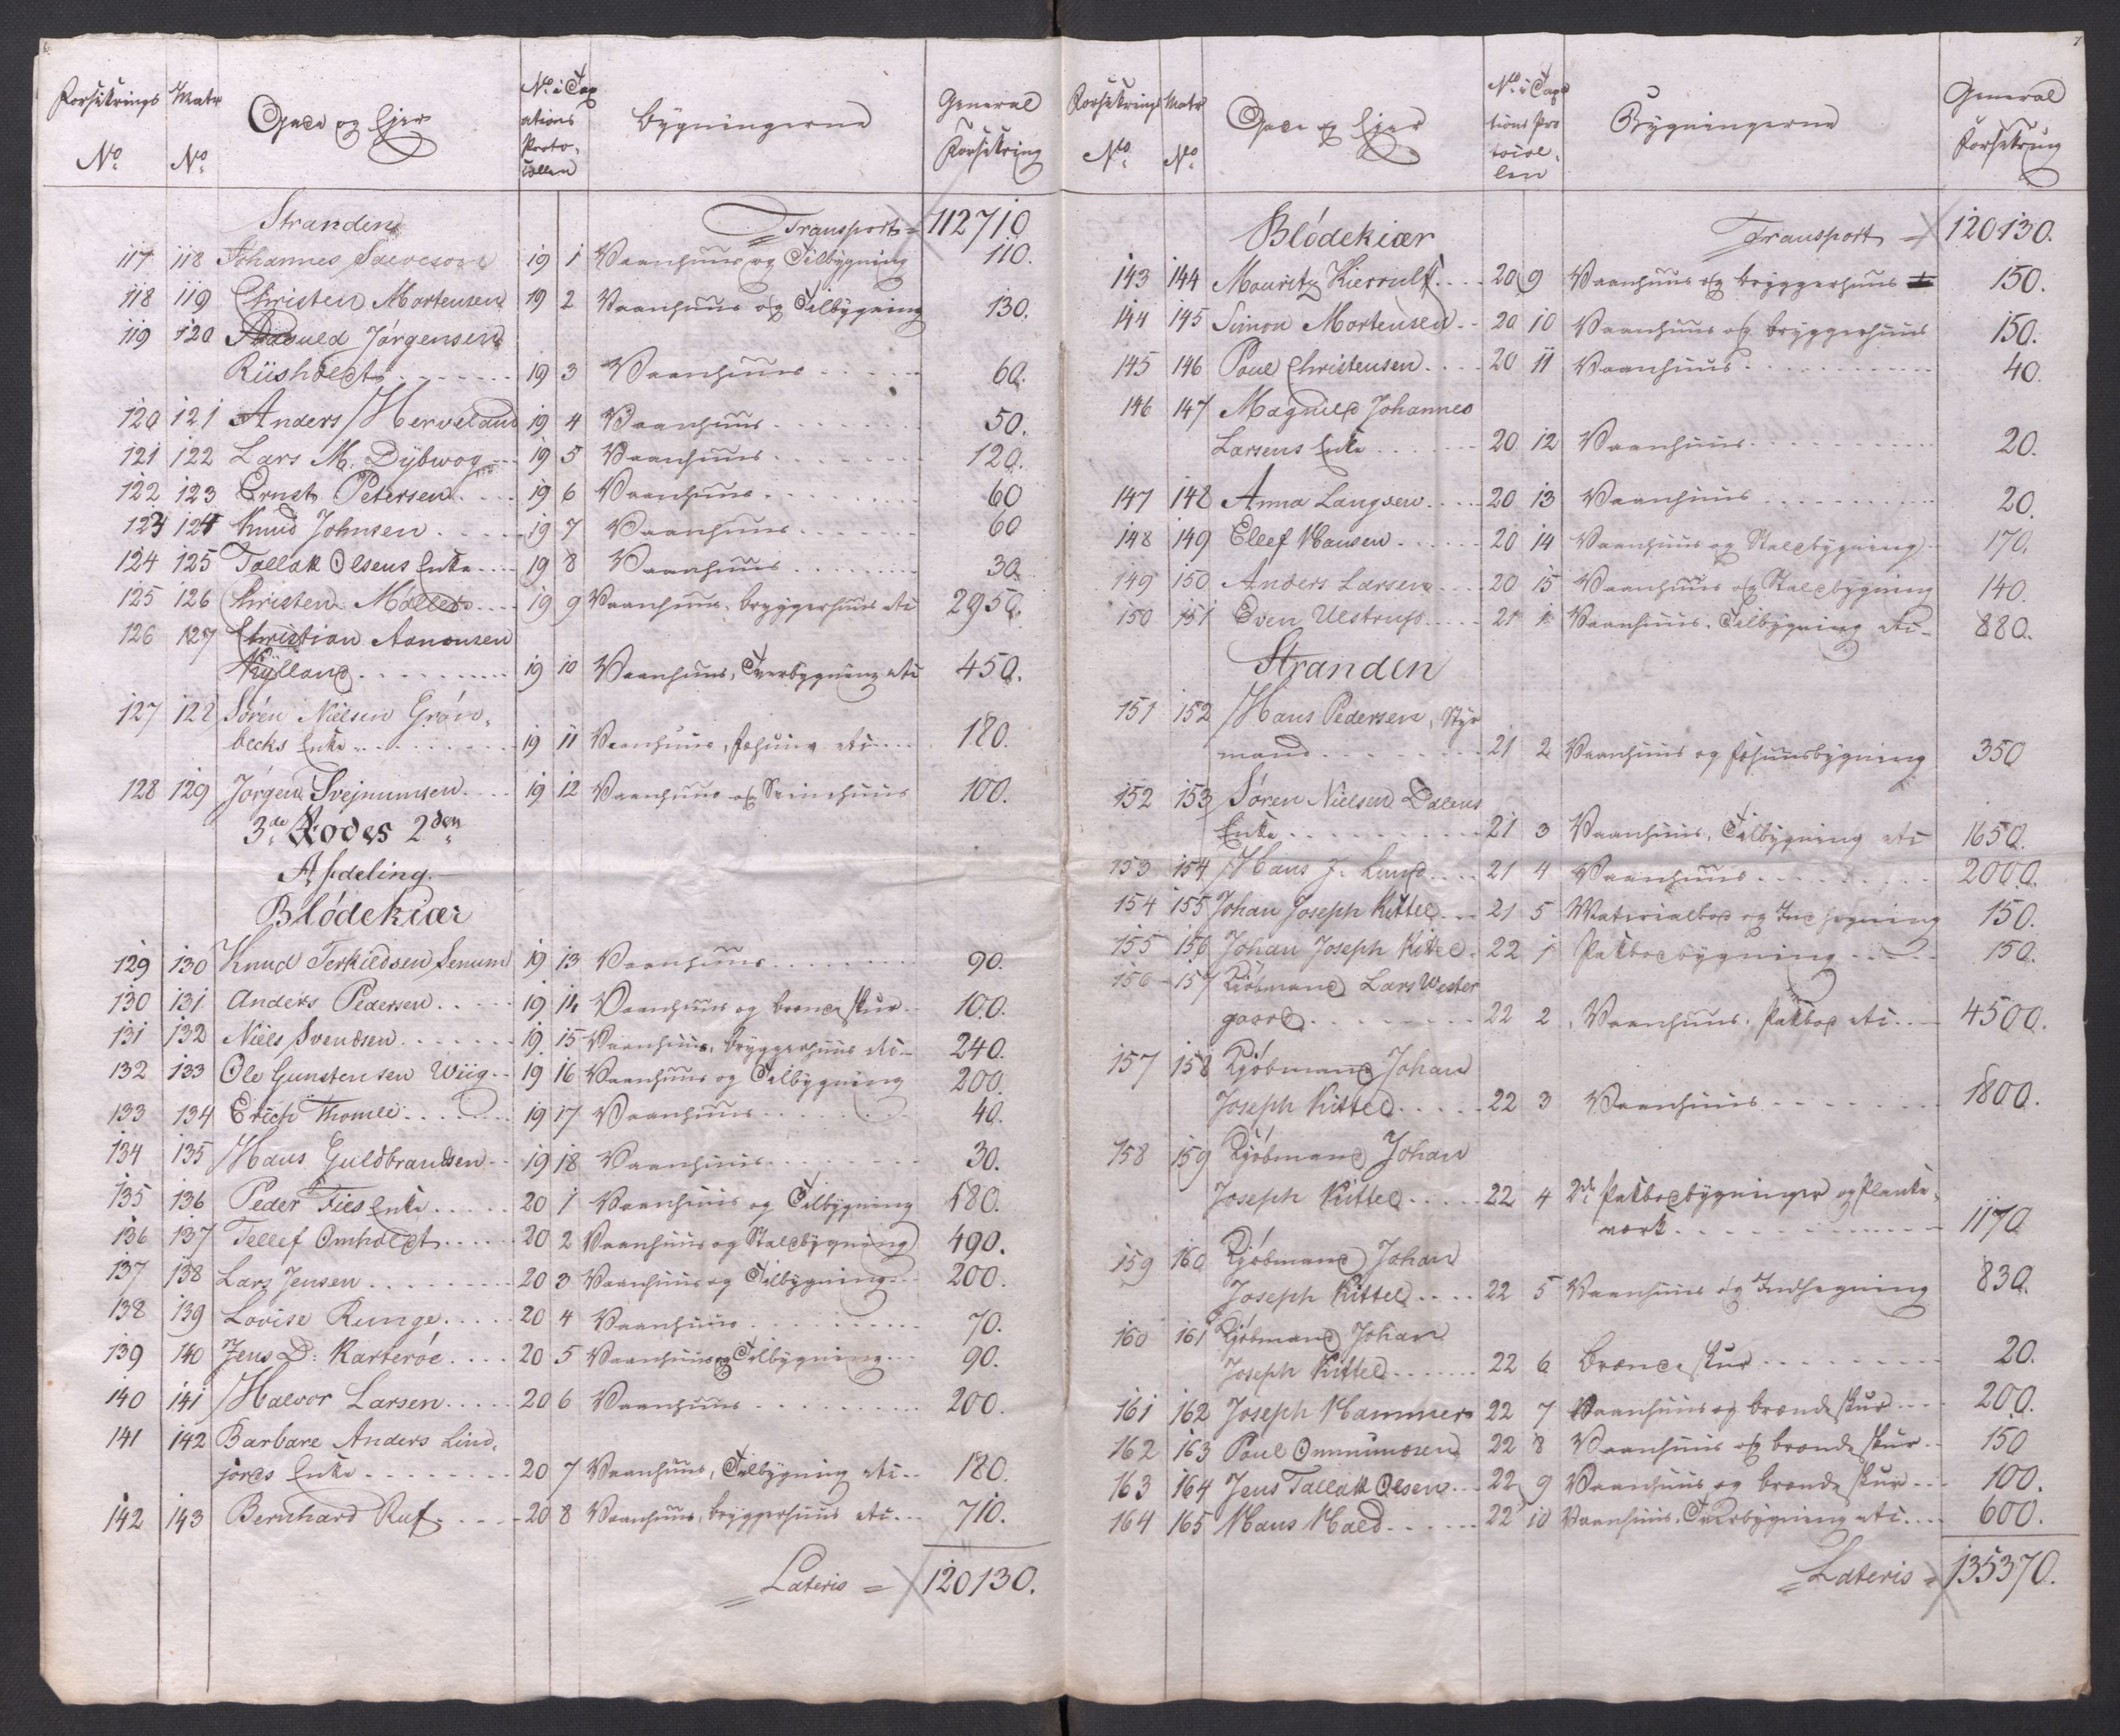 6.
Forsikrings No. | Matr No. | Gade og Ejer | No. i Taxations Protocollen | Bygningerne | General Forsikring
Stranden | Transport = 112710
117 118 Johannes Salvesøn 19 1 Vaanhuus og Tilbygning 110.
118 119 Christen Mortensen 19 2 Vaanhuus og Tilbygning 130.
119 120 Jørgensen
Riisholdt 19 3 Vaanhuus 60.
120 121 Anders Herveland 19 4 Vaanhuus 50.
121 122 Lars M. Dybwog 19 5 Vaanhuus 120.
122 123 Ernst Petersen 19 6 Vaanhuus 60
123 124 Knud Johnsen 19 7 Vaanhuus 60
124 125 Tallak Olsens Enke 19 8 Vaanhuus 30.
125 126 Christen Møller 19 9 Vaanhuus, bryggerhuus etc 2950.
126 127 Christian Aanonsen
Kylland 19 10 Vaanhuus, Tverbygning etc 450.
127 128 Søren Nielsen Grøn-
becks Enke 19 11 Vaanhuus, Søhuus etc 180.
128 129 Jørgen Svejnumsen 19 12 Vaanhuus og Sviinehuus 100.
3de Rodes 2den
Afdeling.
Blødekiær
129 130 Knud Terkildsen Senum 19 13 Vaanhuus 90.
130 131 Anders Pedersen 19 14 Vaanhuus og brændeskur 100.
131 132 Niels Svendsen 19. 15 Vaanhuus, bryggerhuus etc 240.
132 133 Ole Gunstensen Wiig 19 16 Vaanhuus og Tilbygning 200.
133 134 Erich Thomle 19 17 Vaanhuus 40.
134 135 Hans Guldbrandsen 19 18 Vaanhuus 30.
135 136 Peder Fies Enke 20 1 Vaanhuus og Tilbygning 180.
136 137 Tellef Omholdt 20 2 Vaanhuus og Staldbygning 490.
137 138 Lars Jensen 20 3 Vaanhuus og Tilbygning 200.
138 139 Lovise Runge 20 4 Vaanhuus 70.
139 140 Jens D: Karterøe 20 5 Vaanhuus og Tilbygning 90.
140 141 Halvor Larsen 20 6 Vaanhuus 200.
141 142 Barbare Anders Lind-
jords Enke 20 7 Vaanhuus, Tilbygning etc 180.
142 143 Bernhard Ruf 20 8 Vaanhuus, bryggerhuus etc 710.
Lateris = 120130.
7
Forsikrings No. | Matr No. | Gade og Ejer | No. i Taxations Protocollen | Bygningerne | General Forsikring
Blødekiær | Transport = 120130.
143 144 Mouritz Kierrulf 20 9 Vaanhuus og bryggerhuus 150.
144 145 Simon Mortensen 20 10 Vaanhuus og bryggerhuus 150.
145 146 Poul Christensen 20 11 Vaanhuus 40.
146 147 Magnild Johannes
Larsens Enke 20 12 Vaanhuus 20.
147 148 Anna Langsen 20 13 Vaanhuus 20.
148 149 Ellef Hansen 20 14 Vaanhuus og Staldbygning 170.
149 150 Anders Larsen 20 15 Vaanhuus og Staldbygning 140.
150 151 Even Ulstrup 21 1 Vaanhuus, Tilbygning etc 880.
Stranden
151 152 Hans Pedersen, Styr
mand 21 2 Vaanhuus og Søhuusbygning 350
152 153 Søren Nielsen Dalens
Enke 21 3 Vaanhuus, Tilbygning etc 1650.
153 154 Hans J. Lund 21 4 Vaanhuus 2000.
154 155 Johan Joseph Kittel 21 5 Materialbod og Indhegning 150.
155 156 Johan Joseph Kittel 22 1 Pakbodbygning 150.
156 157 Kjøbmand Lars Wester
gaard 22 2 Vaanhuus, Pakbod etc 4500.
157 158 Kjøbmand Johan
Joseph Kittel 22 3 Vaanhuus 1800.
158 159 Kjøbmand Johan
Joseph Kittel 22 4 2de Pakbodbygninger og Planke-
værk 1170
159 160 Kjøbmand Johan
Joseph Kittel 22 5 Vaanhuus og Indhegning 830.
160 161 Kjøbmand Johan
Joseph Kittel 22 6 brændeskur 20.
161 162 Joseph Hammer 22 7 Vaanhuus og brændeskur 200.
162 163 Poul Ommundsen 22 8 Vaanhuus og brændeskur 150
163 164 Jens Tallak Olsen 22 9 Vaanhuus og brændeskur 100.
164 165 Hans Hald 22 10 Vaanhuus, Tverbygning etc 600.
Lateris = 135370.